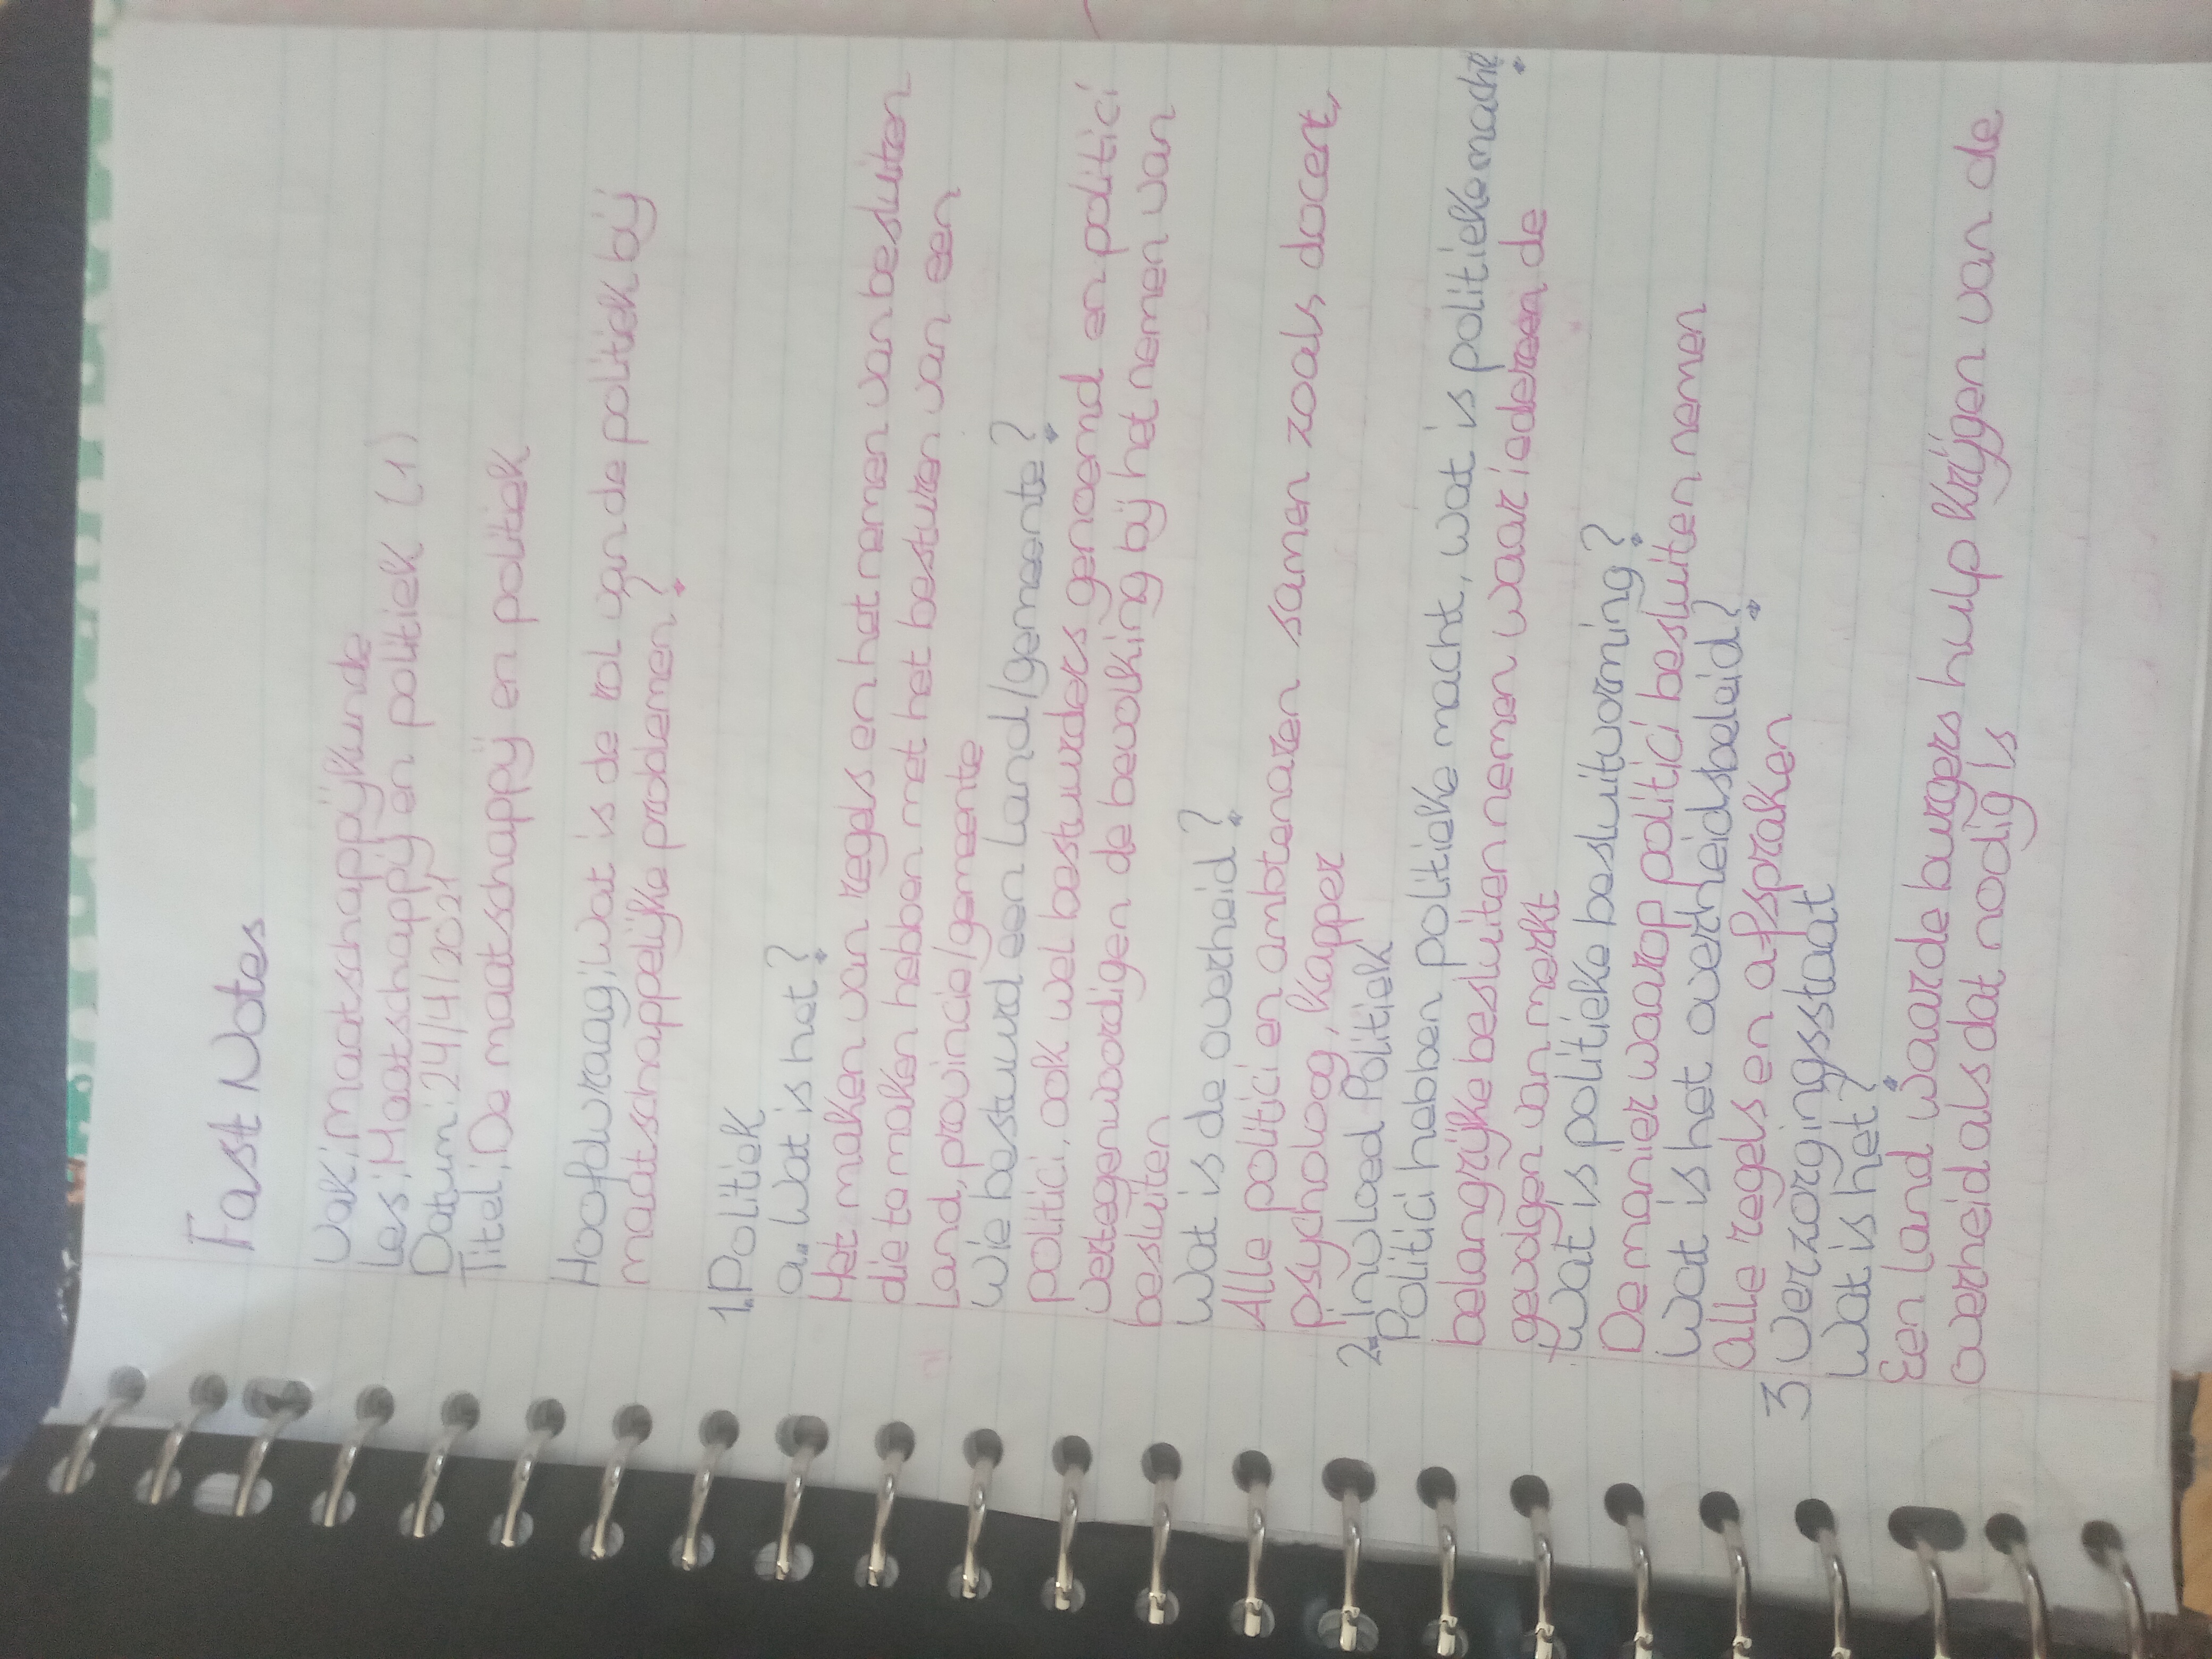 Fast Notes
Vak: Maatschappijkunde
Les: Maatschappij en politiek (1)
Datum: 24/4/2021
Titel: De maatschappij en politiek
Hoofdvraag: wat is de rol van de politiek bij
maatschappelijke problemen?
1. Politiek
a. Wat is het?
Het maken van regels en het nemen van besluiten
die te maken hebben met het besturen van een
land, provincie/gemeente
Wie bestuurd een land/gemeente?
politici, ook wel bestuurders genoemd en politici
vertegenwoordigen de bevolking bij het nemen van
besluiten
Wat is de overheid?
Alle politici en ambtenaren samen zoals, docent,
psycholoog, kapper
2. Invloed Politiek
Politici hebben politieke macht, wat is politieke macht?
belangrijke besluiten nemen waar iedereen de
gevolgen van merkt
Wat is politieke besluitvorming?
De manier waarop politici besluiten nemen
Wat is het overheidsbeleid?
Alle regels en afspraken
3 Verzorgingsstaat
Wat is het?
Een land waar de burgers hulp krijgen van de
overheid als dat nodig is